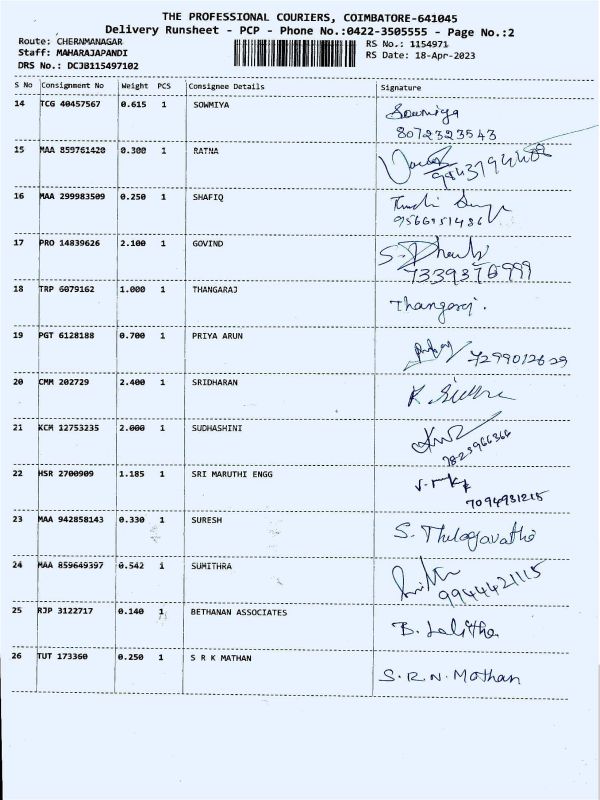 THE PROFESSIONAL COURIERS, COIMBATORE-641045
Delivery Runsheet - PCP - Phone No.:0422-3505555 - Page No.:2
Route: CHERNMANAGAR
RS No.: 1154971
Staff: MAHARAJAPANDI
RS Date: 18-Apr-2023
DRS No.: DCJB115497102
S No Consignment No Weight PCS Consignee Details Signature
14 TCG 40457567 0.615 1 SOWMIYA Sowmiya
8072323543
15 MAA 859761420 0.300 1 RATNA
16 MAA 299983509 0.250 1 SHAFIQ
17 PRO 14839626 2.100 1 GOVIND
7339376999
18 TRP 6079162 1.000 1 THANGARAJ Thangaraj.
19 PGT 6128188 0.700 1 PRIYA ARUN 7299012629
20 CMM 202729 2.400 1 SRIDHARAN
21 KCM 12753235 2.000 1 SUDHASHINI
22 HSR 2700909 1.185 1 SRI MARUTHI ENGG
7094931215
23 MAA 942858143 0.330 1 SURESH S. Thilagavathi
24 MAA 859649397 0.542 1 SUMITHRA
9944421115
25 RJP 3122717 0.140 1 BETHANAN ASSOCIATES B. Lalitha
26 TUT 173360 0.250 1 S R K MATHAN S.R.N. Mathan